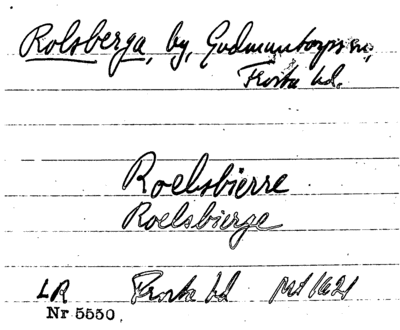 Rolsberga, by, Gudmuntorps sn,
Frosta hd.
Roelsbierre
Roelsbierge
LR Frosta hd 1621
Nr 5550.